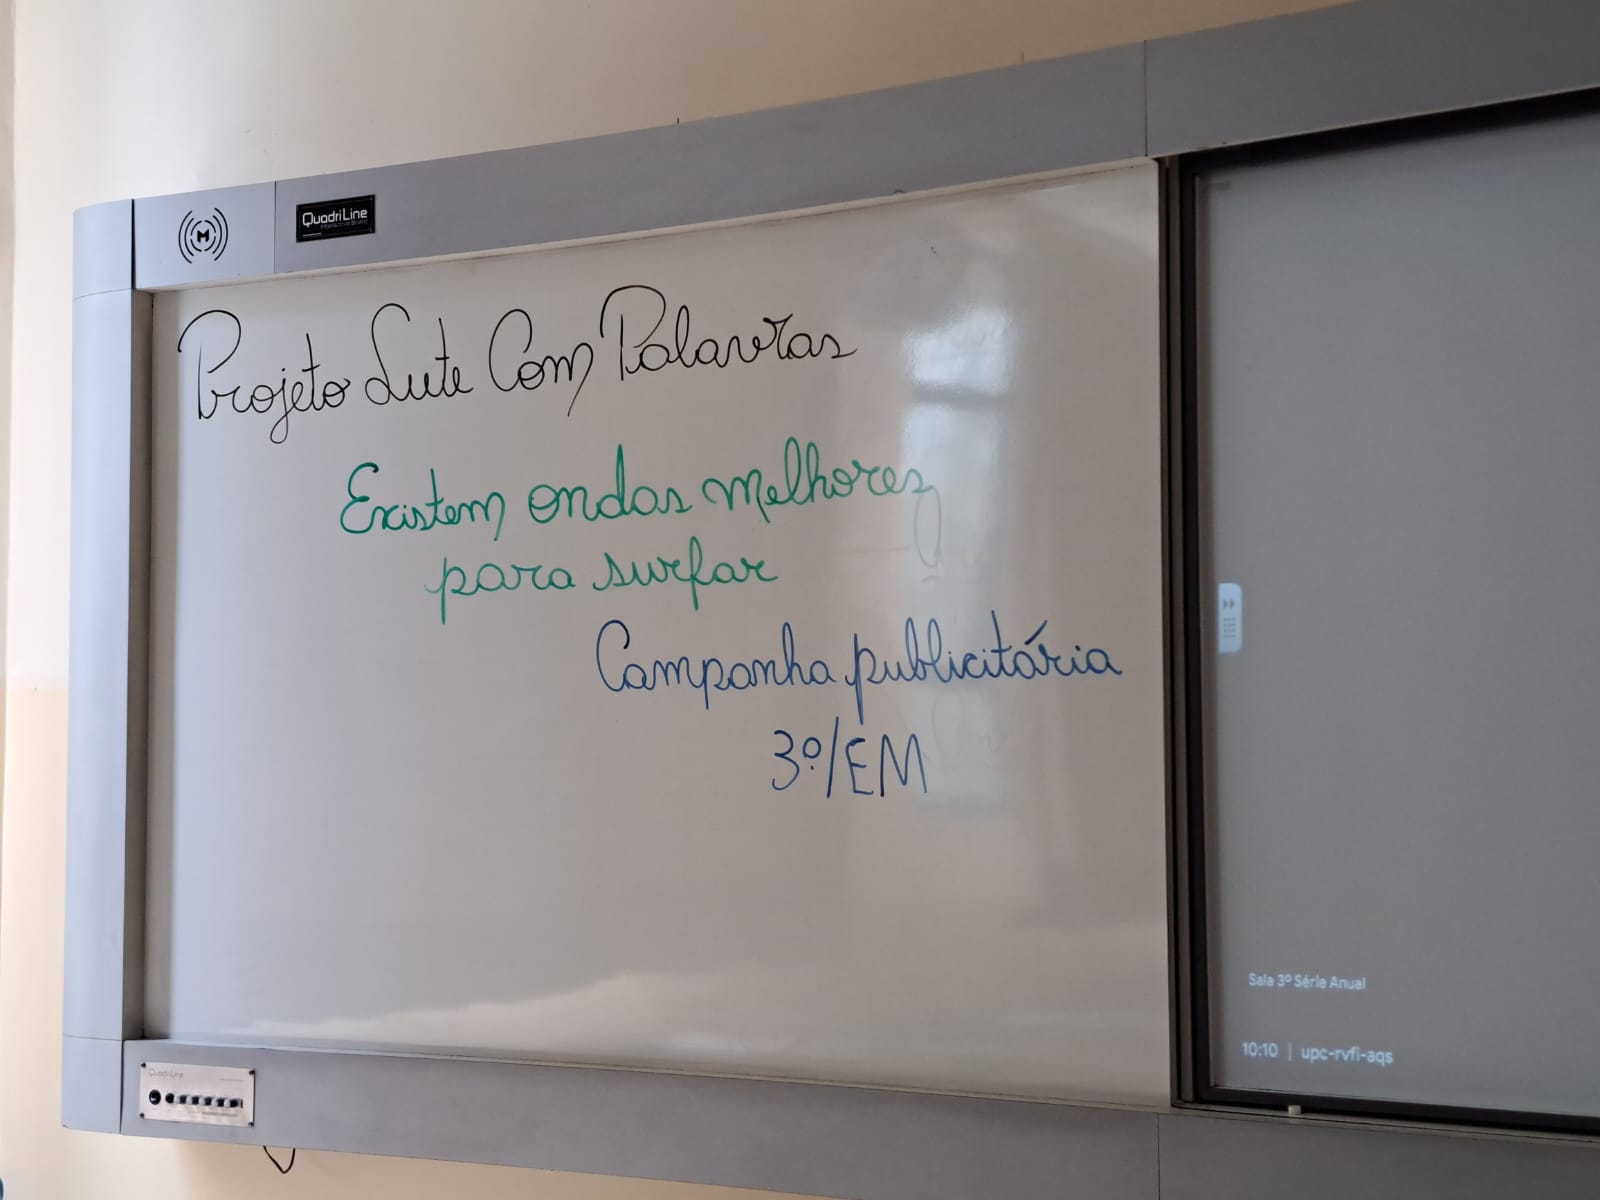 QuadriLine
Projeto Lute Com Palavras
Existem ondas melhores
para surfar
Campanha publicitária
3º/EM
Sala 3º Série Anual
10:10 | upc-rvfi-aqs
QuadriLine